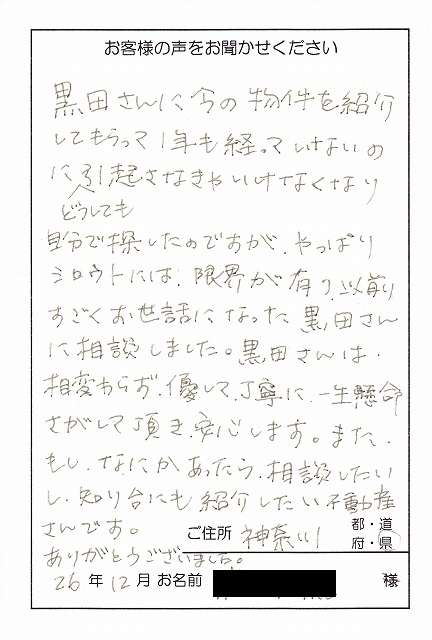 お客様の声をお聞かせください
黒田さんに今の物件を紹介
してもらって1年も経っていないの
に引起さなきゃいけなくなり
どうしても
自分で探したのですが、やっぱり
シロウトには、限界が有り、以前
すごくお世話になった黒田さん
に相談しました。黒田さんは、
相変わらず、優しく、丁寧に、一生懸命
さがして頂き、安心します。また、
もし、なにかあったら、相談したい
し、知り合にも紹介したい不動産
さんです。
ご住所 神奈川 都・道
府・県
ありがとうございました。
26年12月 お名前 様